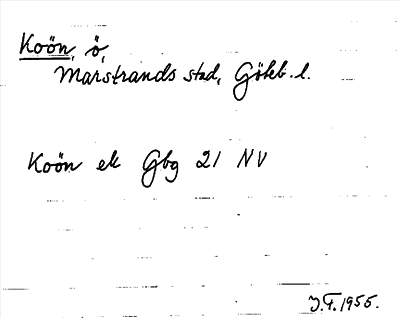 Koön, ö,
Marstrands stad, Göteb. l.
Koön ek Gbg 21 NV
J.F. 1955.